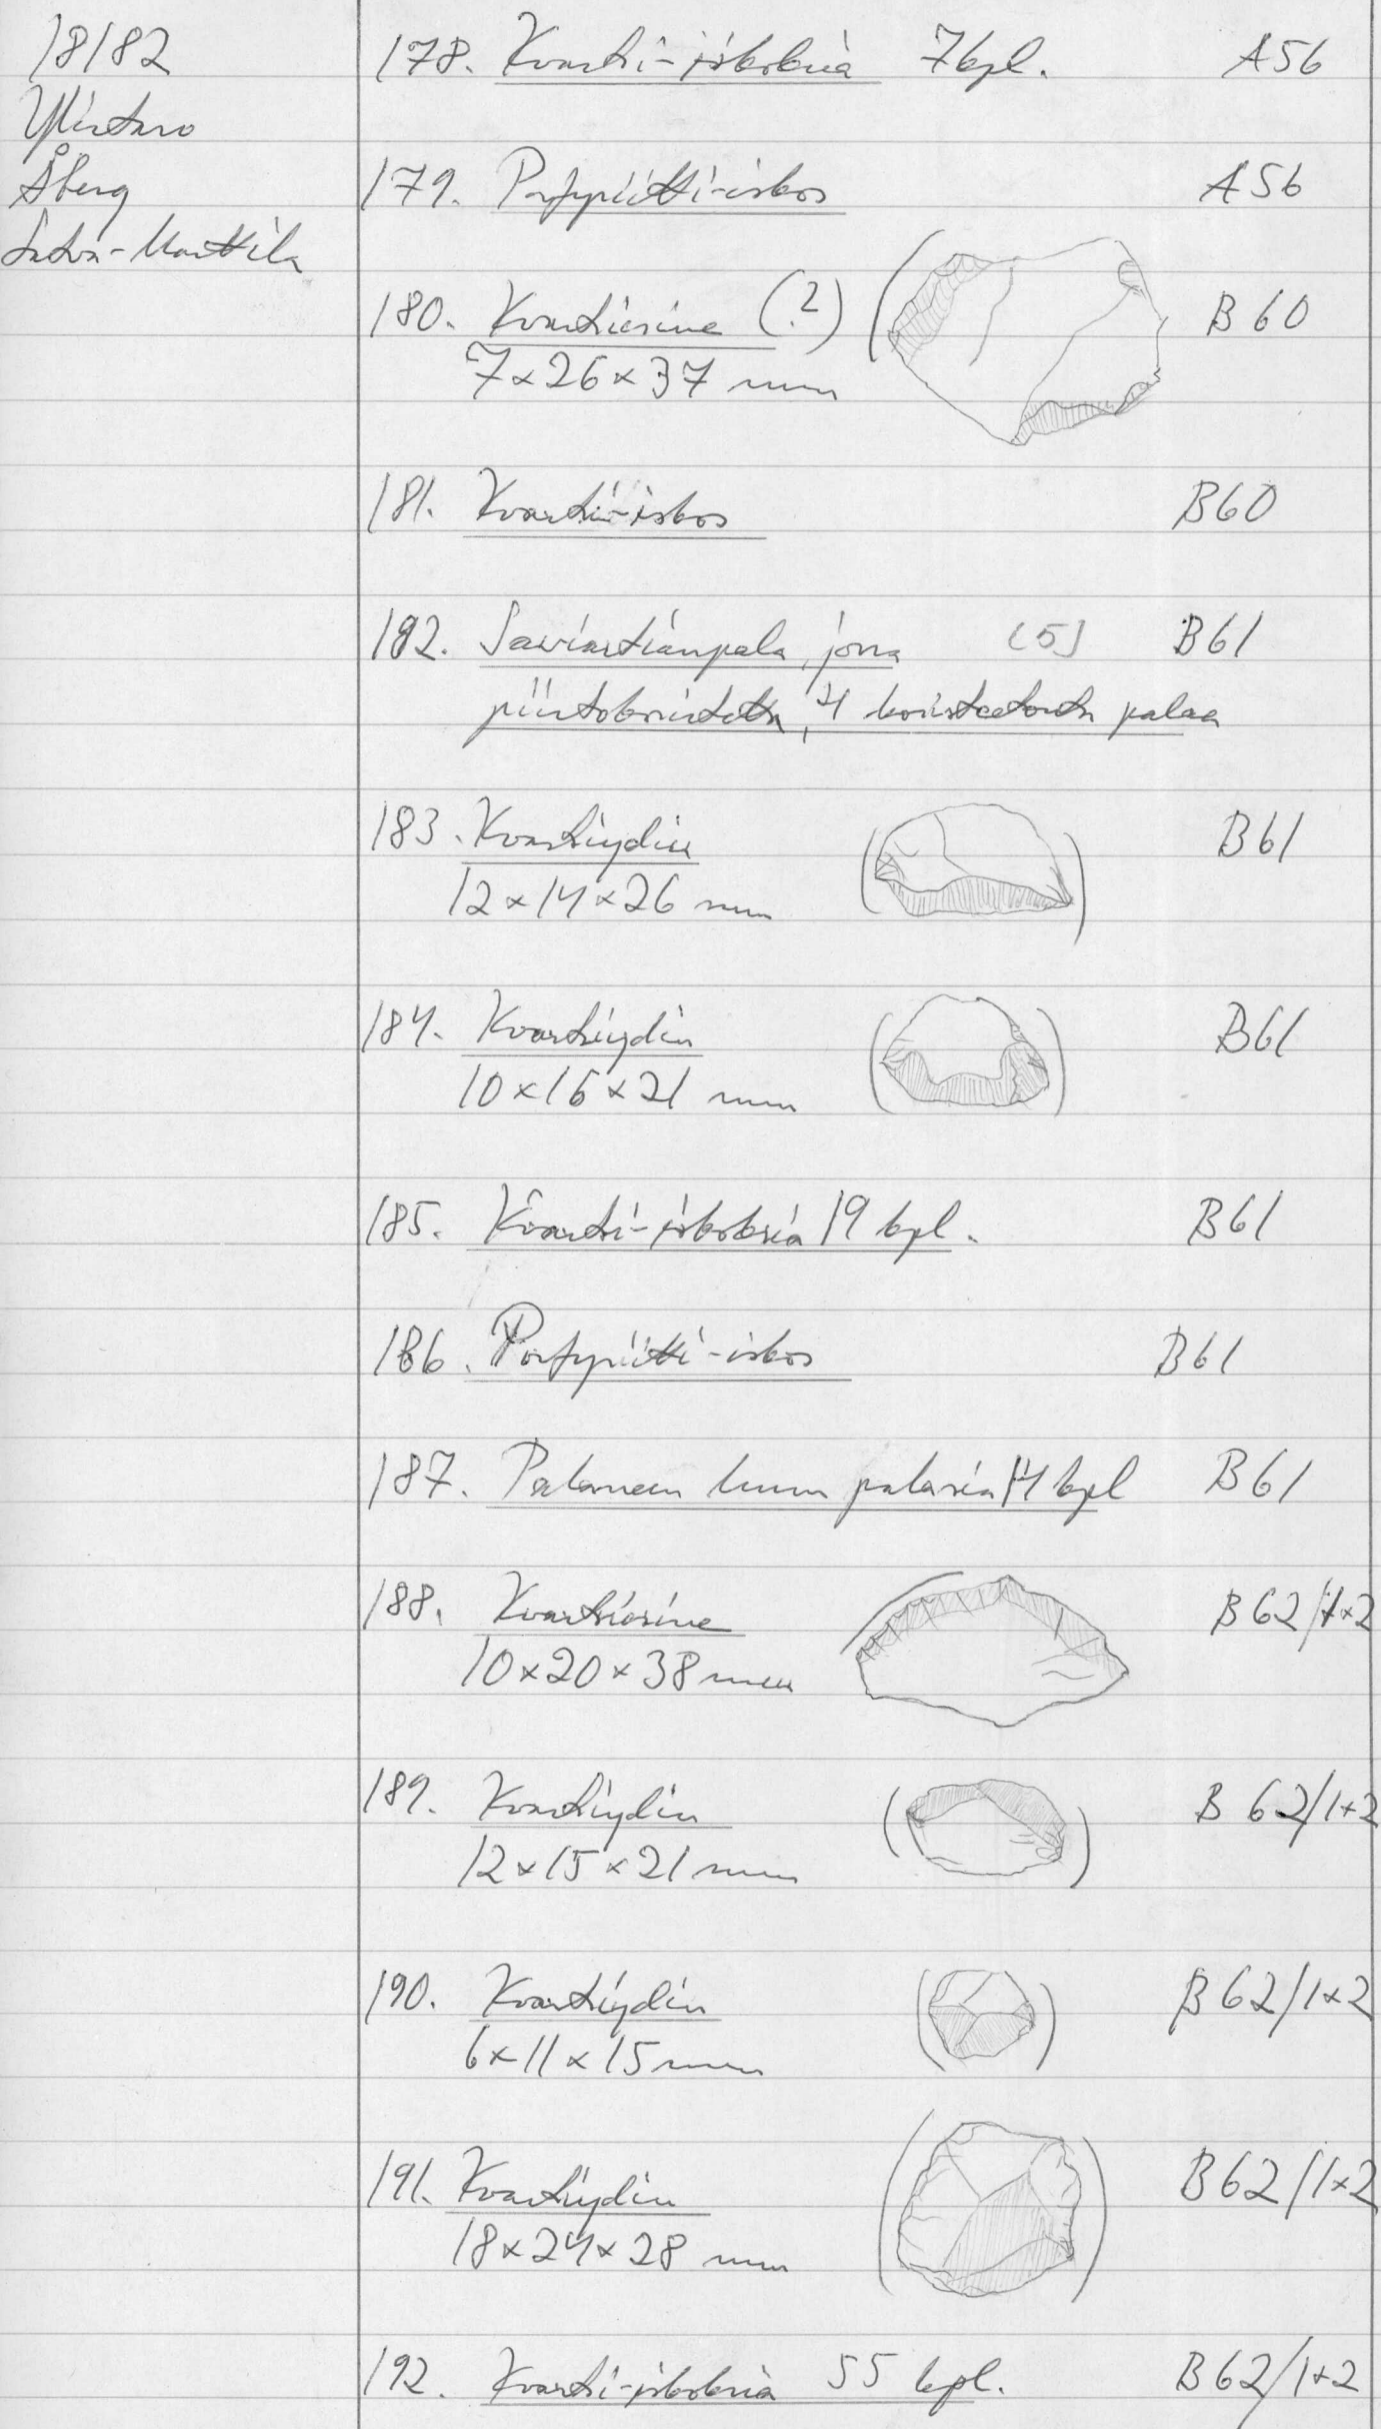 18182
Ylistaro
Åberg
Latva-Marttila
178. Kvartsi-iskoksia 7 kpl. A56
179. Porfyriitti-iskos A56
180. Kvartsiesine (?) B 60
7×26×37 mm
181. Kvartsi-iskos B60
182. Saviastianpala, jossa (5) B61
pintakoristetta, 4 koristeetonta palaa
183. Kvartsiydin B61
12×14×26 mm
184. Kvartsiydin B61
10×16×21 mm
185. Kvartsi-iskoksia 19 kpl. B61
186. Porfyriitti-iskos B61
187. Palaneen luun palasia 14 kpl B61
188. Kvartsiesine B 62/1×2
10×20×38 mm
189. Kvartsiydin B 62/1×2
12×15×21 mm
190. Kvartsiydin B 62/1×2
6×11×15 mm
191. Kvartsiydin B 62/1×2
18×24×28 mm
192. Kvartsi-iskoksia 55 kpl. B 62/1×2